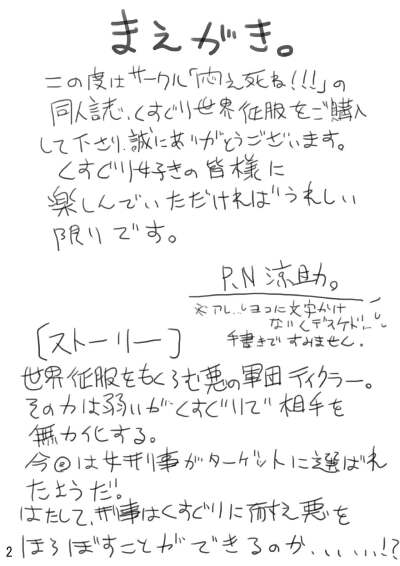 まえがき。
この度はサークル「悶え死ね!!!」の
同人誌、くすぐり世界征服をご購入
して下さり、誠にありがとうございます。
くすぐり好きの皆様に
楽しんでいただければうれしい
限りです。
P.N 涼助。
手書きですみません。
[ストーリー]
世界征服をもくろむ悪の軍団ティクラー。
その力は弱いがくすぐりで相手を
無力化する。
今回は女刑事がターゲットに選ばれ
たようだ。
はたして、刑事はくすぐりに耐え悪を
ほろぼすことができるのか、、、、、!?
2